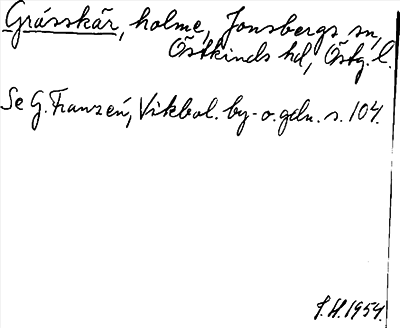 Grässkär, holme, Jonsbergs sn,
Östkinds hd, Östg. l.
Se G. Franzén, Vikbol. by- o. gdn. s. 104.
S.H. 1954.